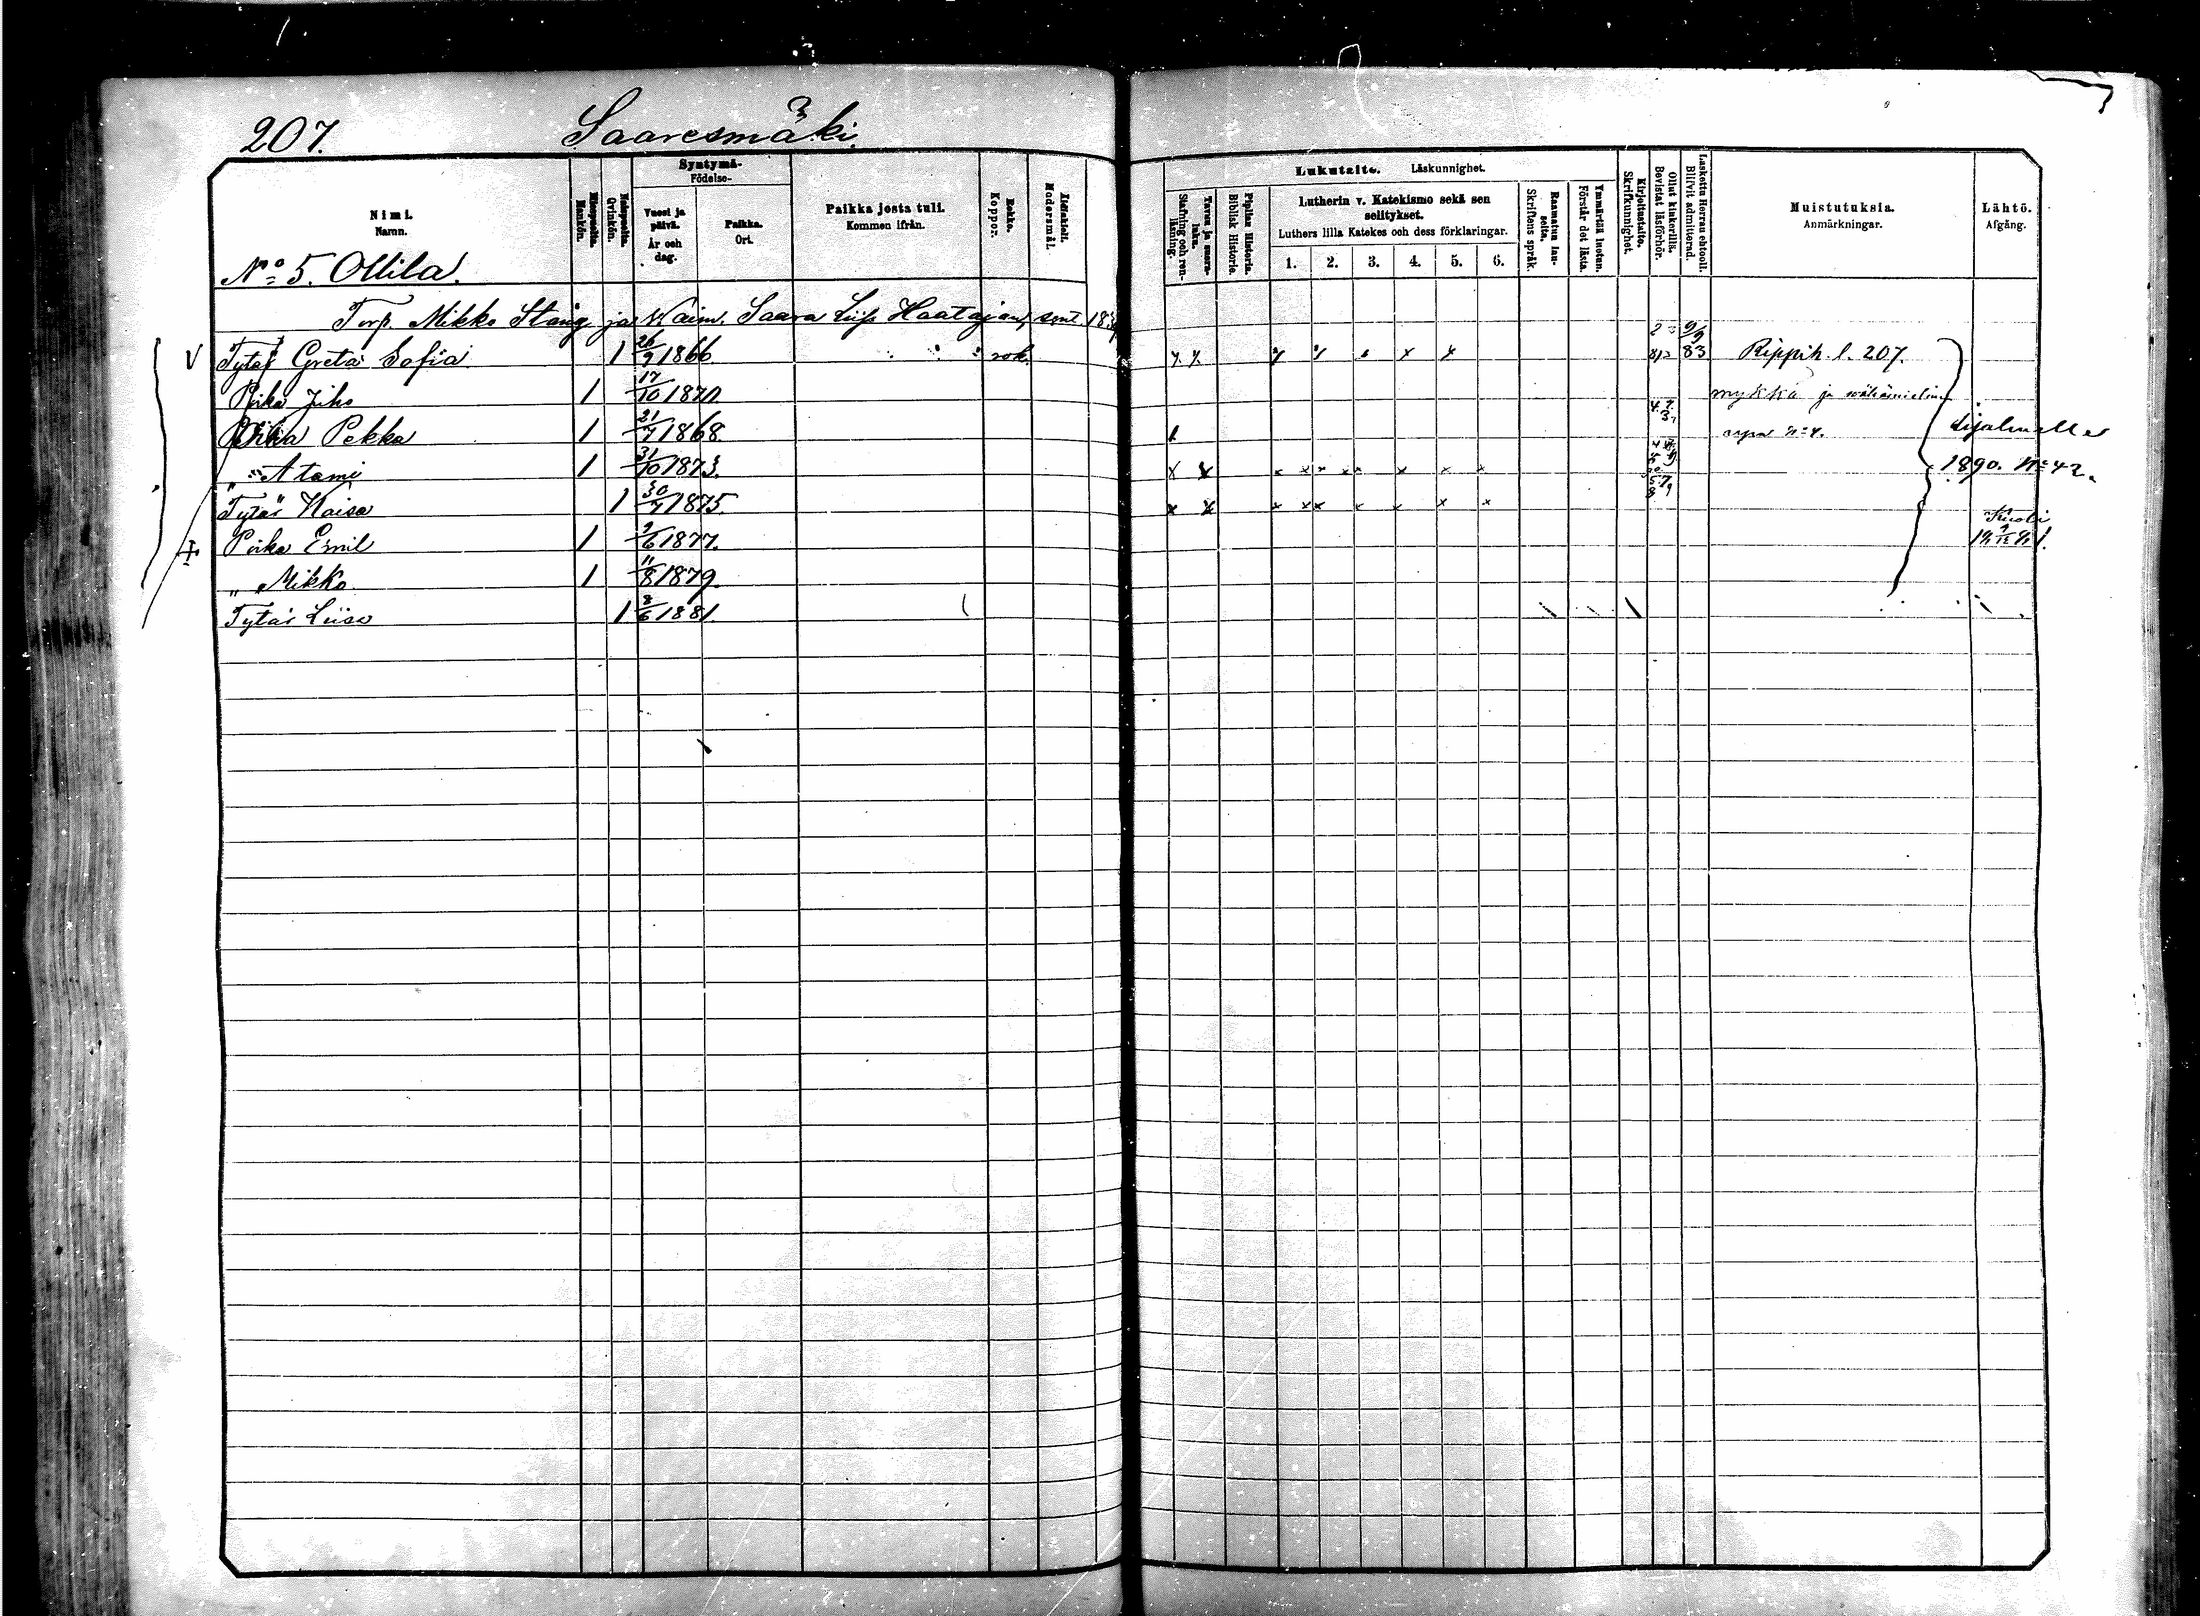 207.
Saaresmäki.
Nimi.
Namn.
Miespuolia.
Mankön.
Naispuolia.
Qvinkön.
Syntymä-
Födelse-
Vuosi ja päivä.
År och dag.
Paikka.
Ort.
Paikka josta tuli.
Kommen ifrån.
Rokko.
Koppor.
Modersmål.
Lukutaito. Läskunnighet.
Tavuu ja suora-luku.
Stafning och ren-läsning.
Piplian Historia.
Biblisk Historie.
Lutherin v. Katekismo sekä sen selitykset.
Luthers lilla Katekes och dess förklaringar.
1. 2. 3. 4. 5. 6.
Raamatun lau-seita.
Skriftens språk.
Ymmärtää luetun.
Förstår det lästa.
Kirjoitustaito.
Skrifkunnighet.
Ollut kinkerillä.
Bevistat läsförhör.
Laskettu Herran ehtooll.
Blifvit admitterad.
Muistutuksia.
Anmärkningar.
Lähtö.
Afgång.
No 5. Ollila.
Torp. Mikko Stång ja Vaim. Saara Liisa Haatajan, synt.
V Tytär Greta Sofia 1 26/9 1866. rok. 9/9 83 Rippik. l. 207.
Poika Juho 1 17/10 1870. mykkä ja
Poika Pekka 1 21/7 1868.
" Atami 1 31/10 1873. 1890. No 42.
Tytär Kaisa 1 30/7 1875.
Poika Emil 1 9/6 1877. Kuoli
" Mikko 1 11/8 1879.
Tytär Liisa 1 8/6 1881.